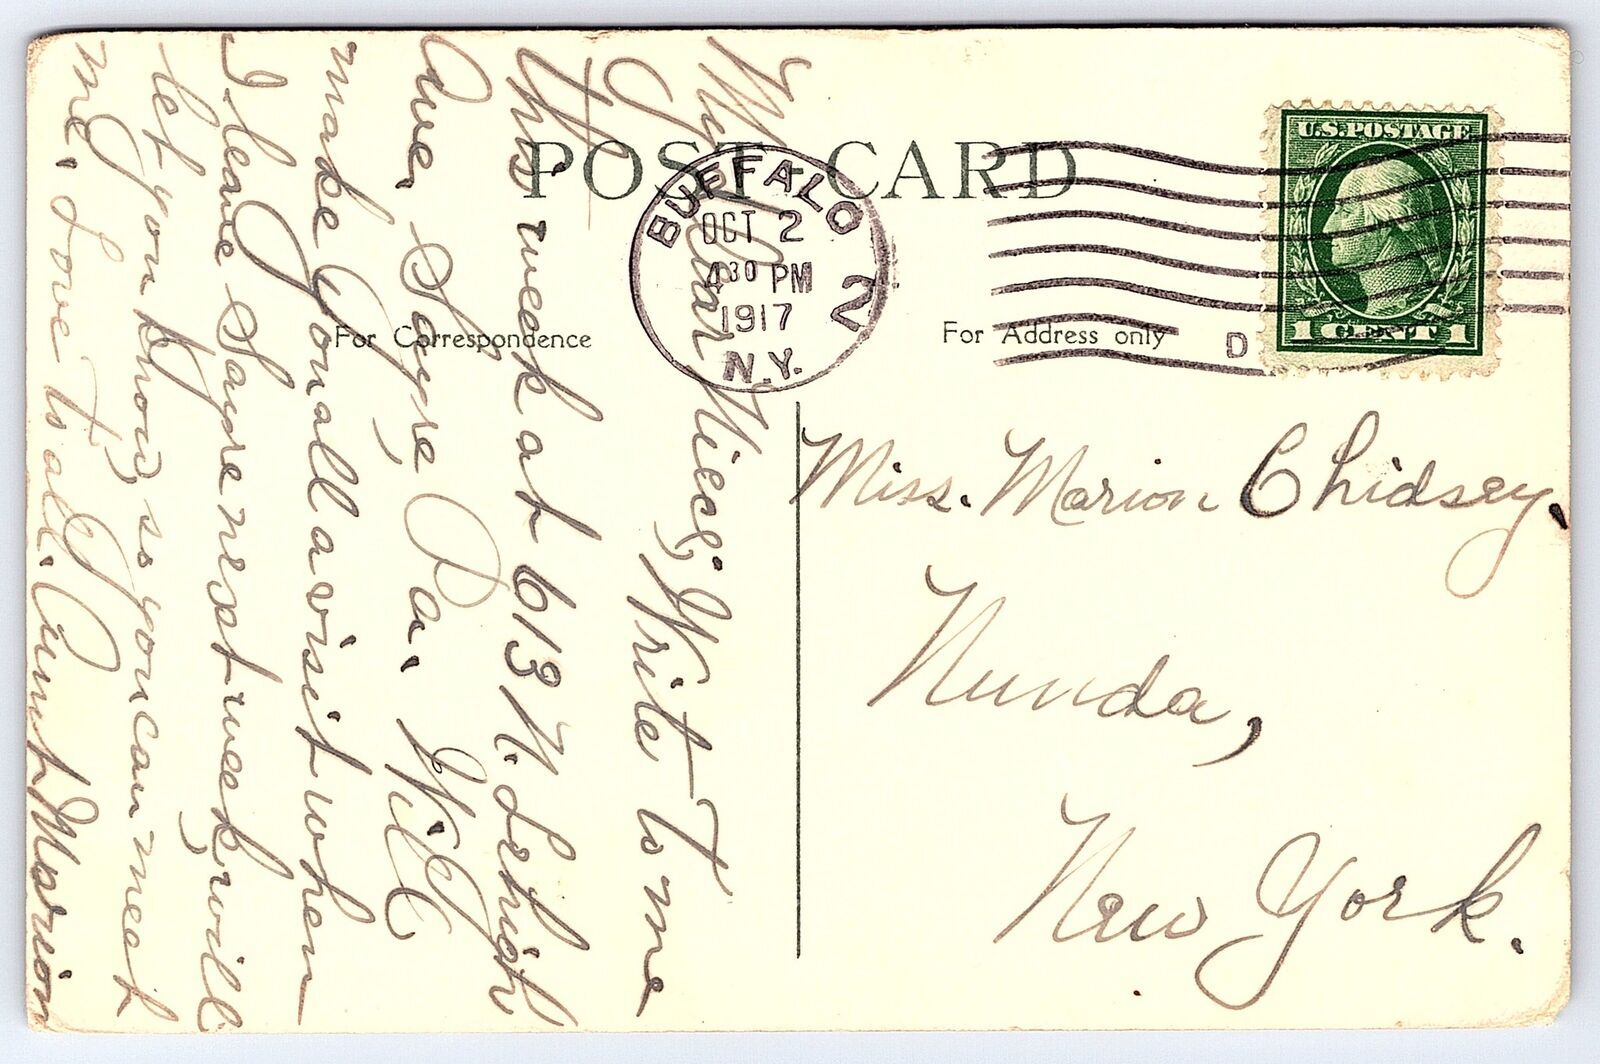 POST CARD
BUFFALO
OCT 2
4 30 PM
1917
N.Y.
2
D
U.S. POSTAGE
1 CENT 1
For Correspondence
For Address only
My Dear Niece, Write to me
this week at 613 N. Lehigh
Ave. Sayre Pa. Will
make you all a visit when
I leave Sayre next week, will
let you know, so you can meet
me. Love to all. Aunt Marion
Miss. Marion Chidsey.
Nunda,
New York.